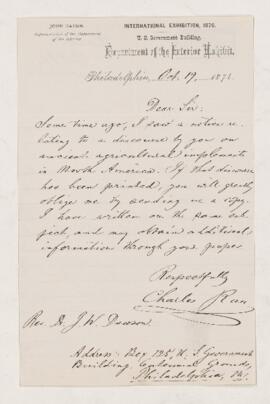 JOHN EATON,
Representative of the Department
of the Interior
INTERNATIONAL EXHIBITION, 1876.
U. S. Government Building.
Department of the Interior Exhibit.
Philadelphia, Oct. 19, 1876.
Dear Sir:
Some time ago, I saw a notice re-
lating to a discourse by you on
ancient agricultural implements
in North America. If that discourse
has been printed, you will greatly
oblige me by sending me a copy.
I have written on the same sub-
ject, and may obtain additional
information through your paper
Respectfully
Charles Rau
Rev. Dr. J. W. Dawson.
Address: Box 125, U. S. Government
Building, Centennial Grounds,
Philadelphia, Pa.